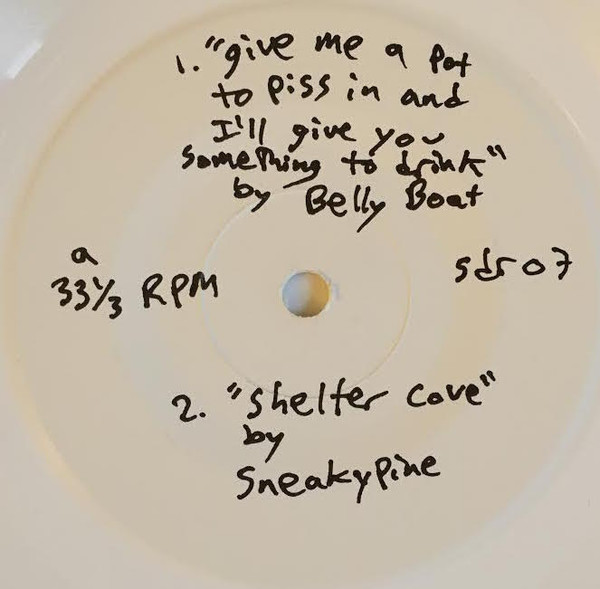 1. "give me a pot
to piss in and
I'll give you
something to drink"
by Belly Boat
a
33⅓ RPM
sdr07
2. "shelter cove"
by
Sneakypine